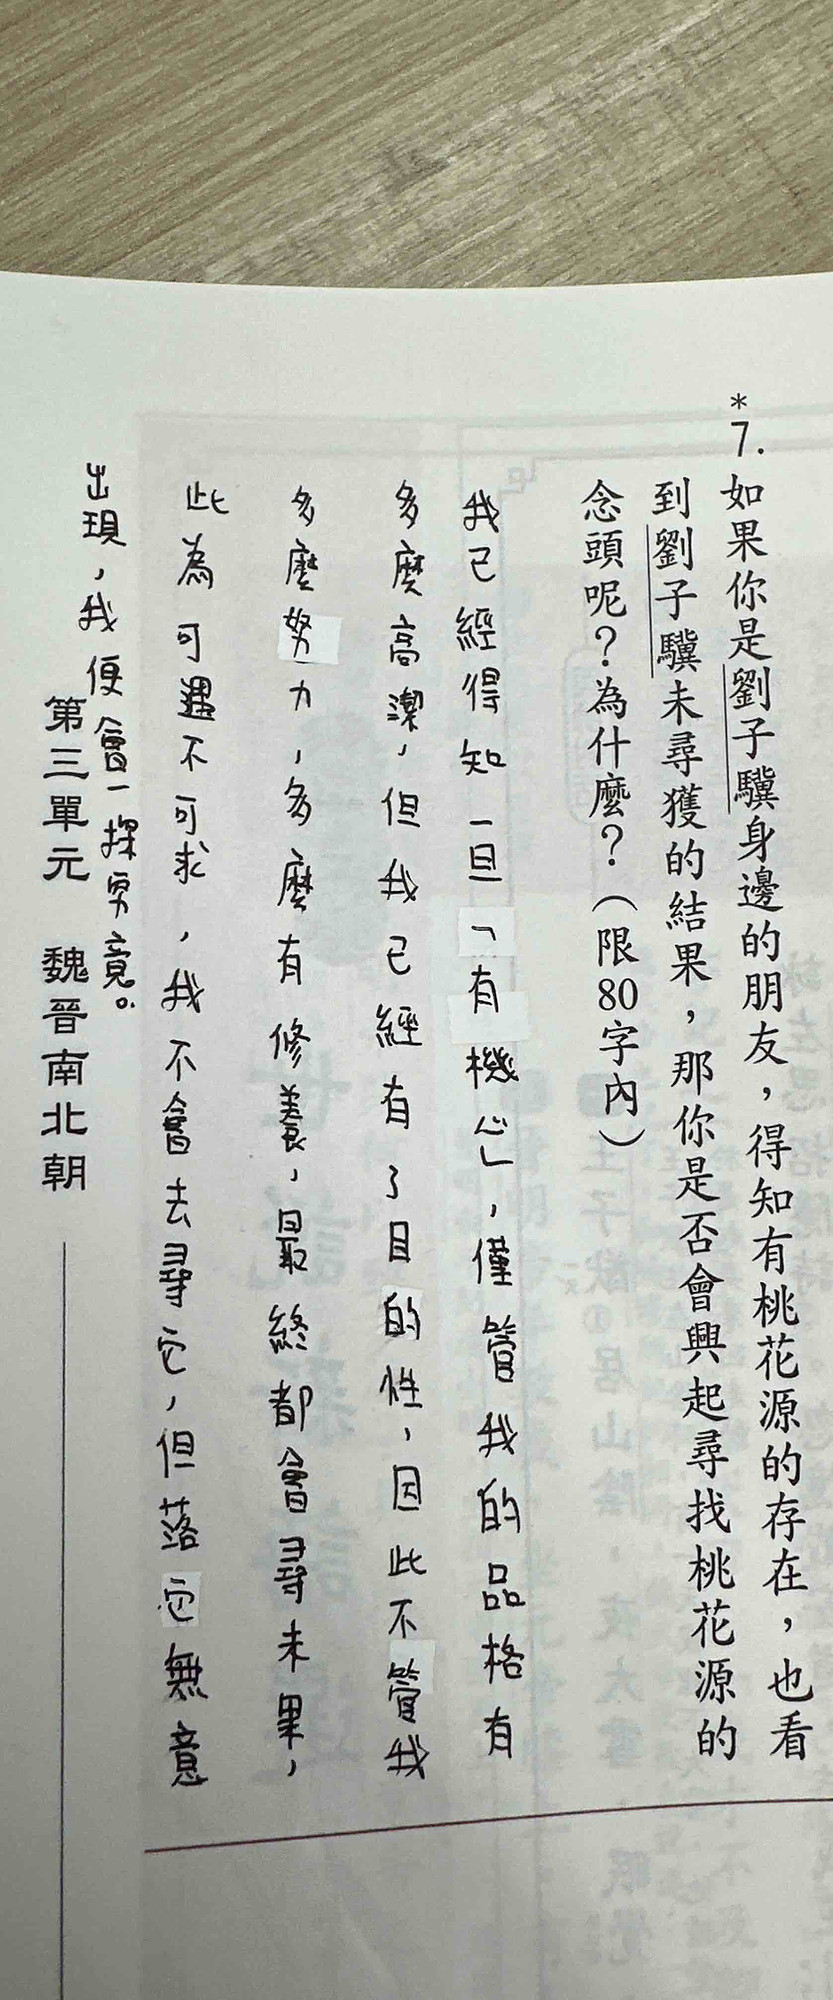 *7.如果你是劉子驥身邊的朋友，得知有桃花源的存在，也看
到劉子驥未尋獲的結果，那你是否會興起尋找桃花源的
念頭呢？為什麼？（限80字內）
我已經得知一旦「有機心」，僅管我的品格有
多麼高潔，但我已經有了目的性，因此不管我
多麼努力，多麼有修養，最終都會尋未果，
此為可遇不可求，我不會去尋它，但落它無意
出現，我便會一探究竟。
第三單元 魏晉南北朝